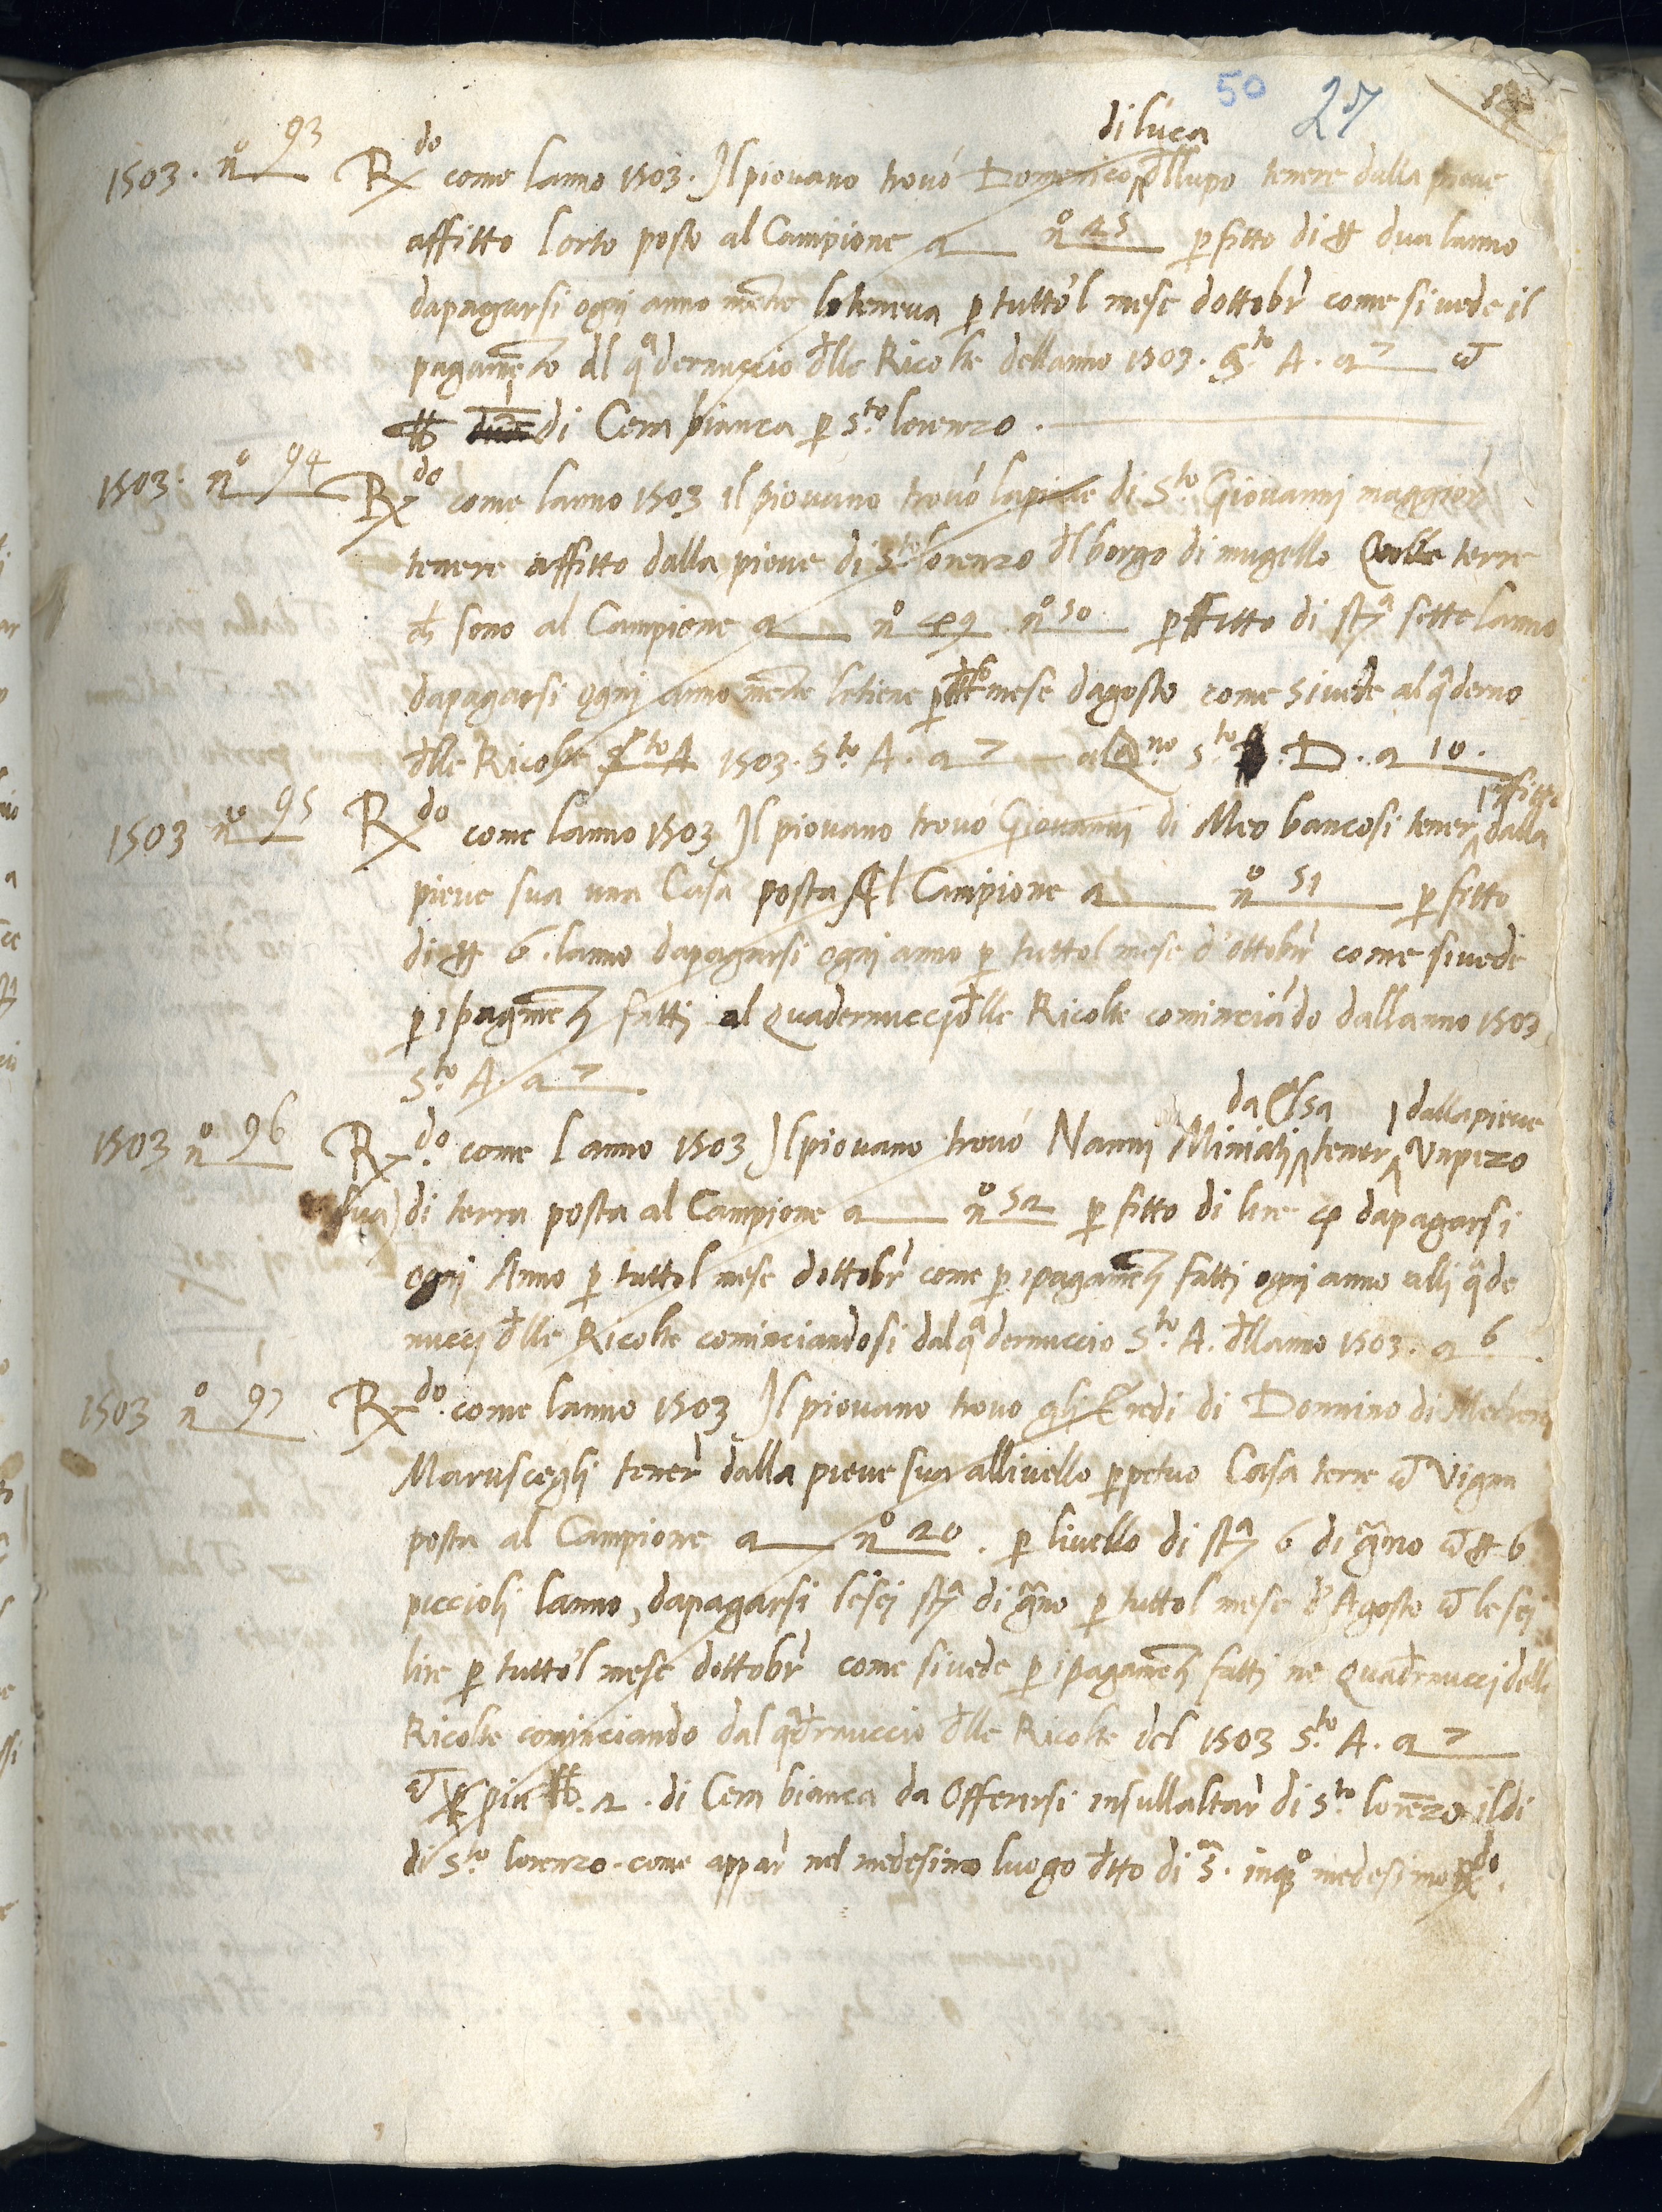 50 27
di luca
1503. nº 93 Rdo come lanno 1503. Il piovano trovó Domenico dllupo tenere dalla pieve
affitto lorto posto al Campione a nº 25 p fitto di # dua lanno
dapagarsi ogni anno mentre loteneva p tutto'l mese dottobr come si vede il
pagamēto al qadernuccio dlle Ricolte dellanno 1503. Sto A. a 7 et
lb 1 di Cera bianca p Sto lorenzo.
1503. nº 94 Rdo come lanno 1503 il piovano trovó lapieve di Sto Giovanni maggior
tenere affitto dalla pieve di Sto lorenzo dl borgo di mugello terre
ch sono al Campione a nº 49 nº 50 p fitto di sta sette lanno
dapagarsi ogni anno mentre letiene p mese dagosto come sivede al qaderno
dlle Ricolte Sto A 1503. Sto A. a 7 Qno Sto D. a 10.
affitto
1503 nº 95 Rdo come lanno 1503 Il piovano trovó Giovanni di Meo bancosi tener dalla
pieve sua una Casa posta Al Campione a nº 51 p fitto
di # 6. lanno dapagarsi ogni anno p tuttol mese d'ottobr come sivede
p i pagmeti fatti al Quadernuccio dlle Ricolte cominciādo dallanno 1503
Sto A. a 7
da Elsa dallapieve
1503 nº 96 Rdo come lanno 1503 Il piovano trovó Nanni Miniati tener Unpezo
sua) di terra posta al Campione a nº 52 p fitto di lire 4 dapagarsi
ogni Anno p tuttol mese dottobr come p ipagameti fatti ogni anno alli qade
nucci dlle Ricolte cominciandosi dal qadernuccio Sto A. dllanno 1503. a 6.
1503 nº 97 Rdo come lanno 1503 Il piovano trovo gli Eredi di Donnino di
Maruscegli tener dalla pieve sua allivello ppetuo Casa terre et Vigna
posta al Campione a nº 20. p livello di sta 6 di grano et # 6
piccioli lanno, dapagarsi lesei sta di grano p tuttol mese d'Agosto et lesei
lire p tutto'l mese dottobr come sivede p ipagameti fatti ne Quadrnucci delle
Ricolte cominciando dal qadrnuccio dlle Ricolte del 1503 Sto A. a 7
et piu lb. 2. di Cera bianca da Offerirsi insullaltar di Sto lorēzo ildi
di Sto lorenzo. come appar nel medesimo luogo dtto di sa. inqo medesimo Rdo.